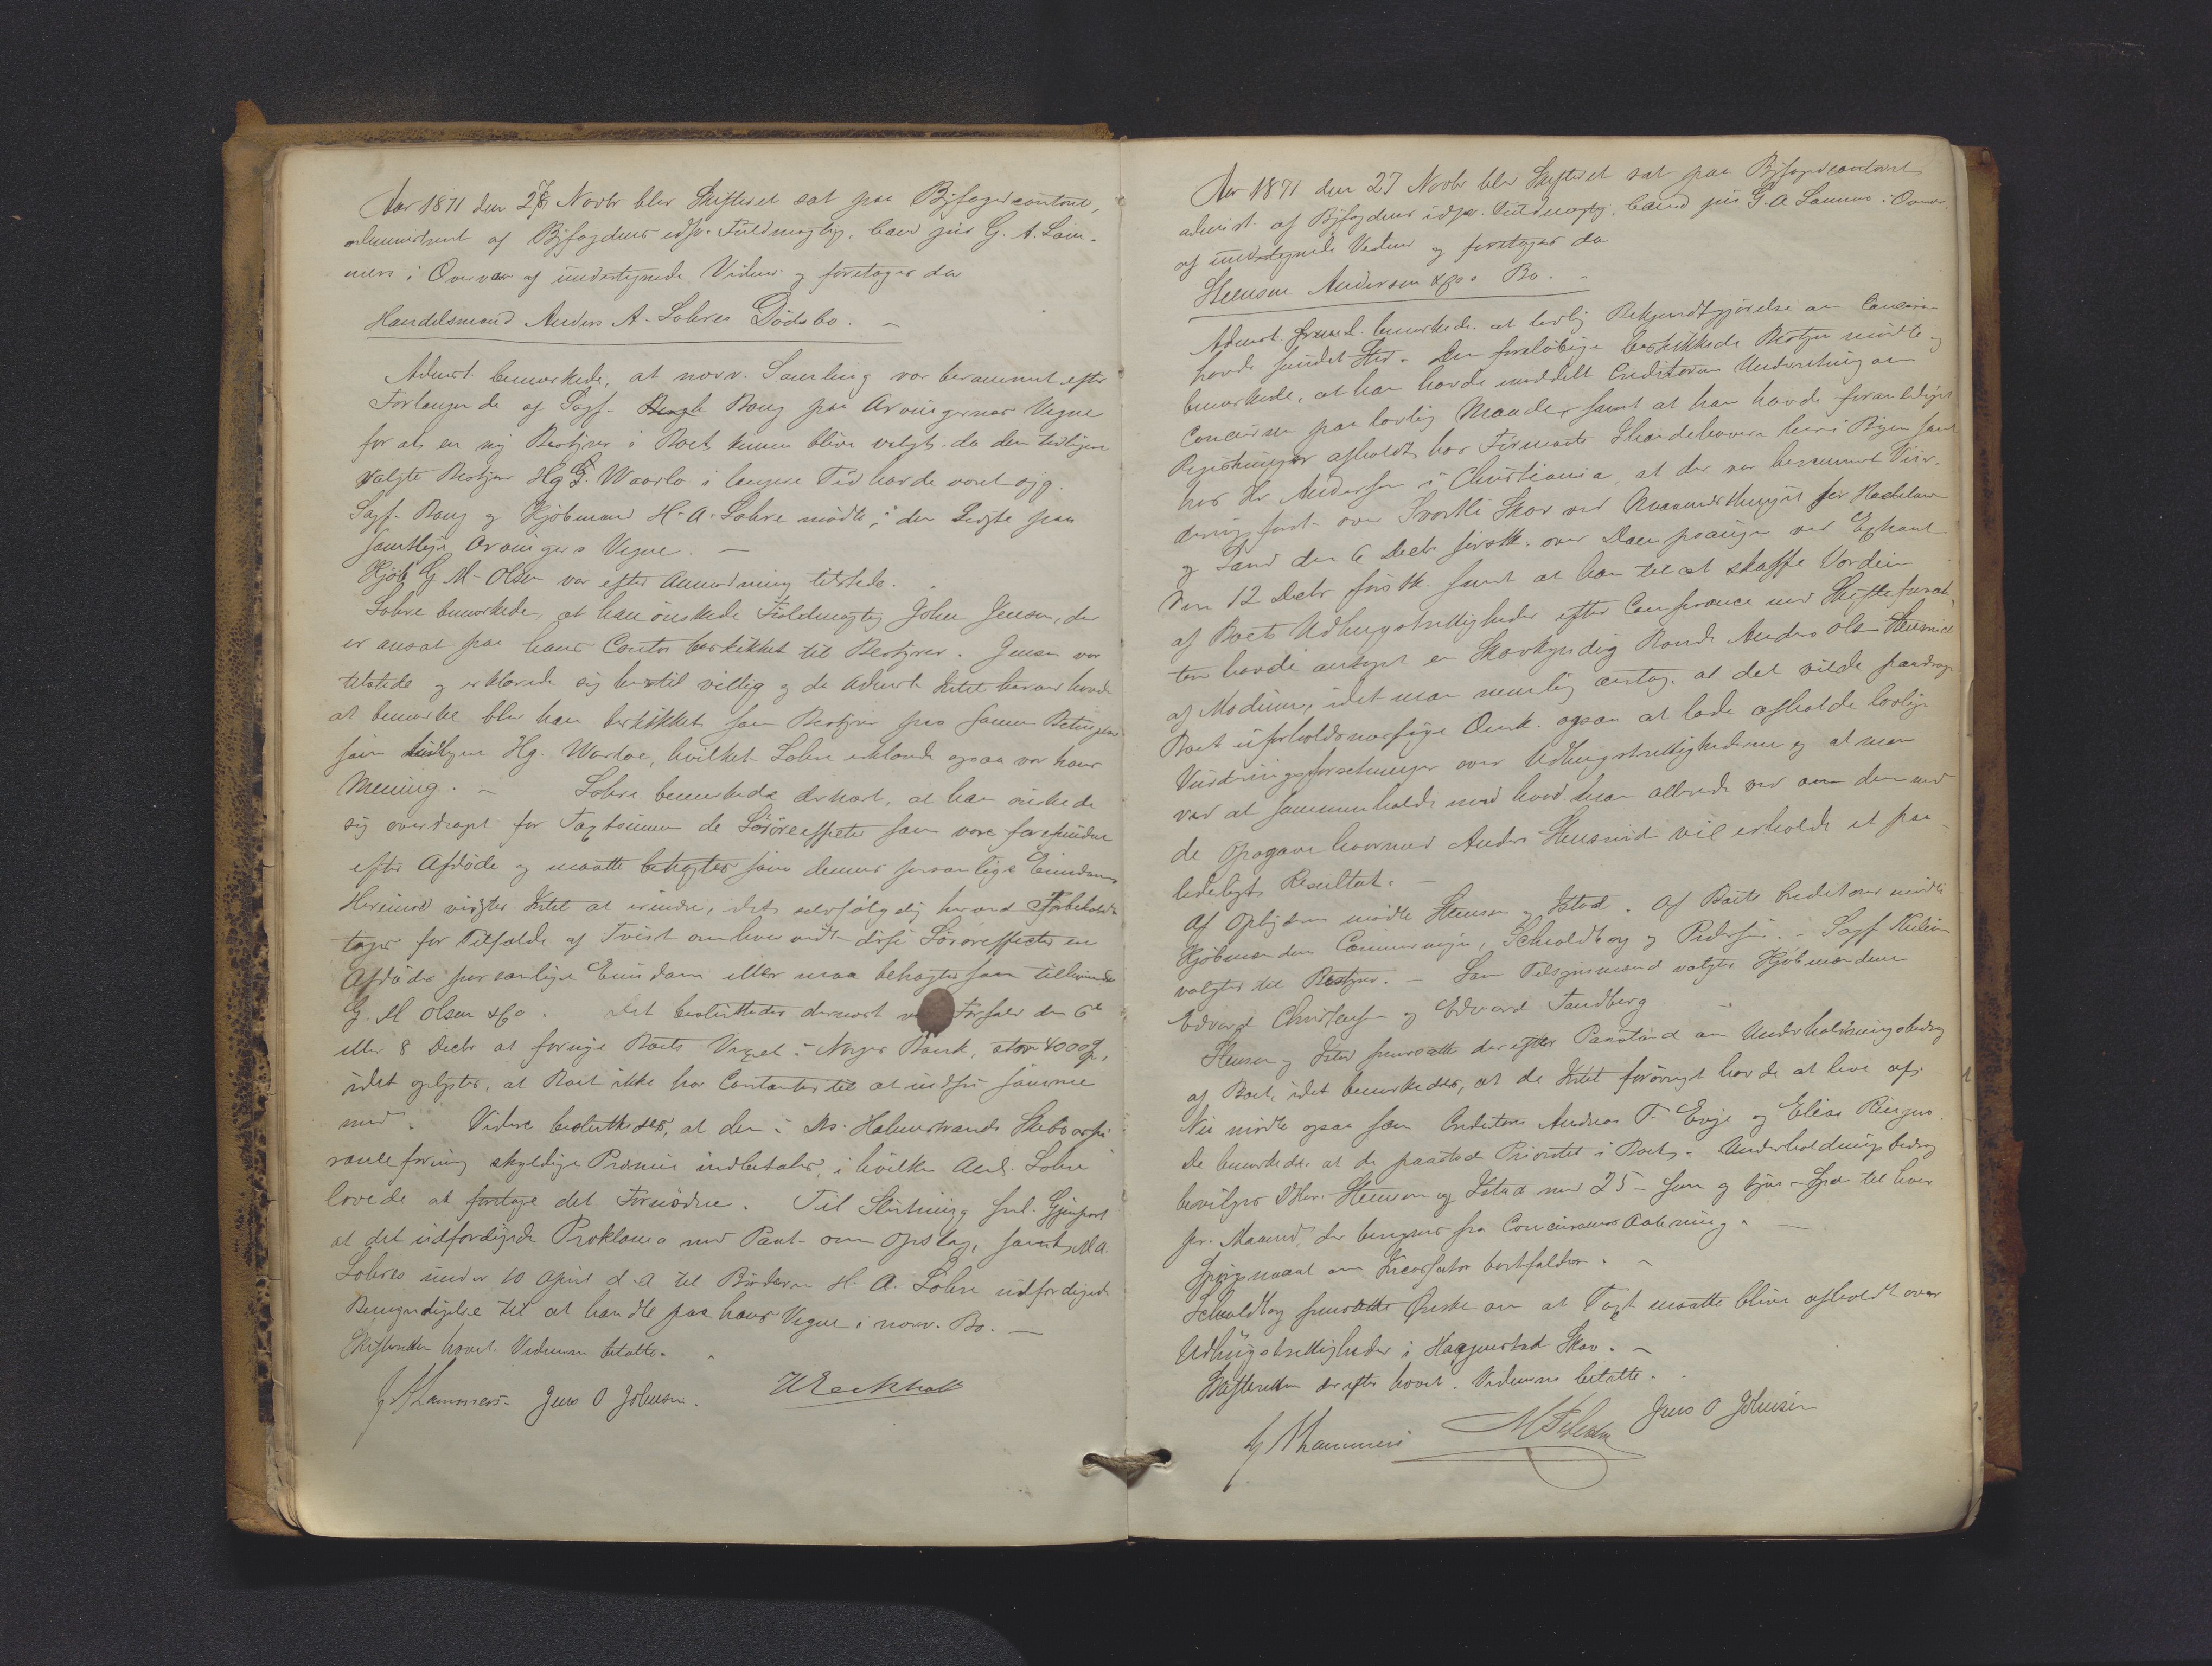 Aar 1871 den 27 Novbr blev Skifteret sat paa Byfogedcontoret,
administreret af Byfogdens edsv. Fuldmægtig, cand. juris G. A. Lam-
mers i Overvær af undertegnede Vidner og foretoges da
Handelsmand Anders A. Solves Dødsbo. –
Admst. bemærkede, at nærv. Samling var berammet efter
Forlangende af Sagf. Bang paa Arvingernes Vegne
for at en ny Bestyrer i Boet kunne blive valgt, da den tidligere
valgte Bestyrer Hg G. Waarlo i længere Tid havde været syg.
Sagf. Bang og Kjøbmand H. A. Solve mødte, den Sidste paa
samtlige Arvingers Vegne. –
Kjøbm G. M. Olsen var efter Anmodning tilstede.
Solve bemærkede, at han ønskede Fuldmægtig John Jensen, der
er ansat paa hans Contor beskikket til Bestyrer. Jensen var
tilstede og erklærede sig hertil villig og da Admst. Intet herimod havde
at bemærke blev han beskikket som Bestyrer paa samme Betingelser
som tidligere Hg. Warloe, hvilket Solve erklærede ogsaa var hans
Mening. – Solve bemerkede dernæst, at han ønskede
sig overdraget for Taxtsummen de Løsøreeffecter som vare forefundne
efter Afdøde og maatte betragtes som dennes personlige Eiendom.
Herimod vidstes Intet at erindre, idet selvfølgelig herved Forbehold
tages for Tilfælde af Tvist om hvorvidt disse Løsøreeffecter ere
Afdødes personlige Eiendom eller maa betragtes som tilhørende
G. M. Olsen & Co. Det besluttedes dernæst ved Forfald den 6te
eller 8 Decbr at fornye Boets Vexel i Norges Bank, stor 4000,
idet oplystes, at Boet ikke har Contanter til at indfri samme
med. Videre besluttedes, at den i Ds. Holmestrands Skibsassu-
ranceforening skyldige Præmie indbetales, i hvilken Anl. Solve
lovede at foretage det Fornødne. Til Slutning freml. Gjenpart
af det udfærdigede Proklama med Paat. om Opslag, samt M A.
Solves under 10 April d. A til Broderen H. A. Solve udfærdigede
Bemyndigelse til at handle paa hans Vegne i nærv. Bo. –
Skifteretten hævet. Vidnerne betalte.
G A Lammers Jens O Johnsen.
Aar 1871 den 27 Novbr blev Skifteret sat paa Byfogedcontoret
administ. af Byfogdens edsv. Fuldmægtig, cand. juris G. A Lammers i Overvær
af undertegnede Vidner og foretoges da
Steensen Andersen & Co. Bo. –
Admst. bemerkede at lovlig Bekjendtgjørelse om Concursen
havde fundet Sted. Den foreløbige beskikkede Bestyrer mødte og
bemerkede, at han havde meddelt Creditorerne Underretning om
Concursen paa lovlig Maade, samt at han havde foranlediget
Registreringer afholdt hos Firmaets Ihændehavere her i Byen samt
hos Hr Andersen i Christiania, at der var berammet Vur-
deringsforr. over Skov ved
og Sand den 6 Decbr førstk. over ved
den 12 Decbr førstk. samt at han til at skaffe Værdien
af Boets Udhugstrettigheder efter Conferance med Skifteforval-
teren havde antaget en Skovkyndig Bonde Anders Olsen
af Modum, idet man nemlig antog, at det vilde paadrage
Boet uforholdsmæssige Omk. ogsaa at lade afholde lovlige
Vurderingsforretninger over Udhugstrettighederne og at man
ved at sammenholde med hvad man allerede ved om dem med
de Opgave hvormed Anders vil erholde et paa-
lideligt Resultat. –
Af Opbyderne mødte Steensen og Ystad. Af Boets Creditorer mødte
Kjøbmændene Commermeyer, Scheldborg og Pedersen. – Sagf
valgtes til Bestyrer. – Som Tilsynsmænd valgtes Kjøbmændene
Edvard Christensen og Edvard Sandberg
Steensen og Ystad fremsatte derefter Paastand om Underholdningsbidrag
af Boet, idet bemerkedes, at de Intet forøvrigt havde at leve af.
Nu mødte ogsaa som Creditorer Andreas T. Evje og Elias Ringnes.
De bemerkede at de paastod Prioritet i Boet. – Underholdningsbidrag
bevilges DHrr. Steensen og Ystad med 25 – fem og tyve – Spd til hver
pr. Maaned, der beregnes fra Concursens Aabning. –
Spørgsmaal om Incassator bortfalder. –
Scheldborg fremsatte Ønske om at Taxt maatte blive afholdt over
Udhugstrettigheder i Haagenstad Skov. –
Skifteretten derefter hævet. Vidnerne betalte.
G A Lammers Jens O Johnsen